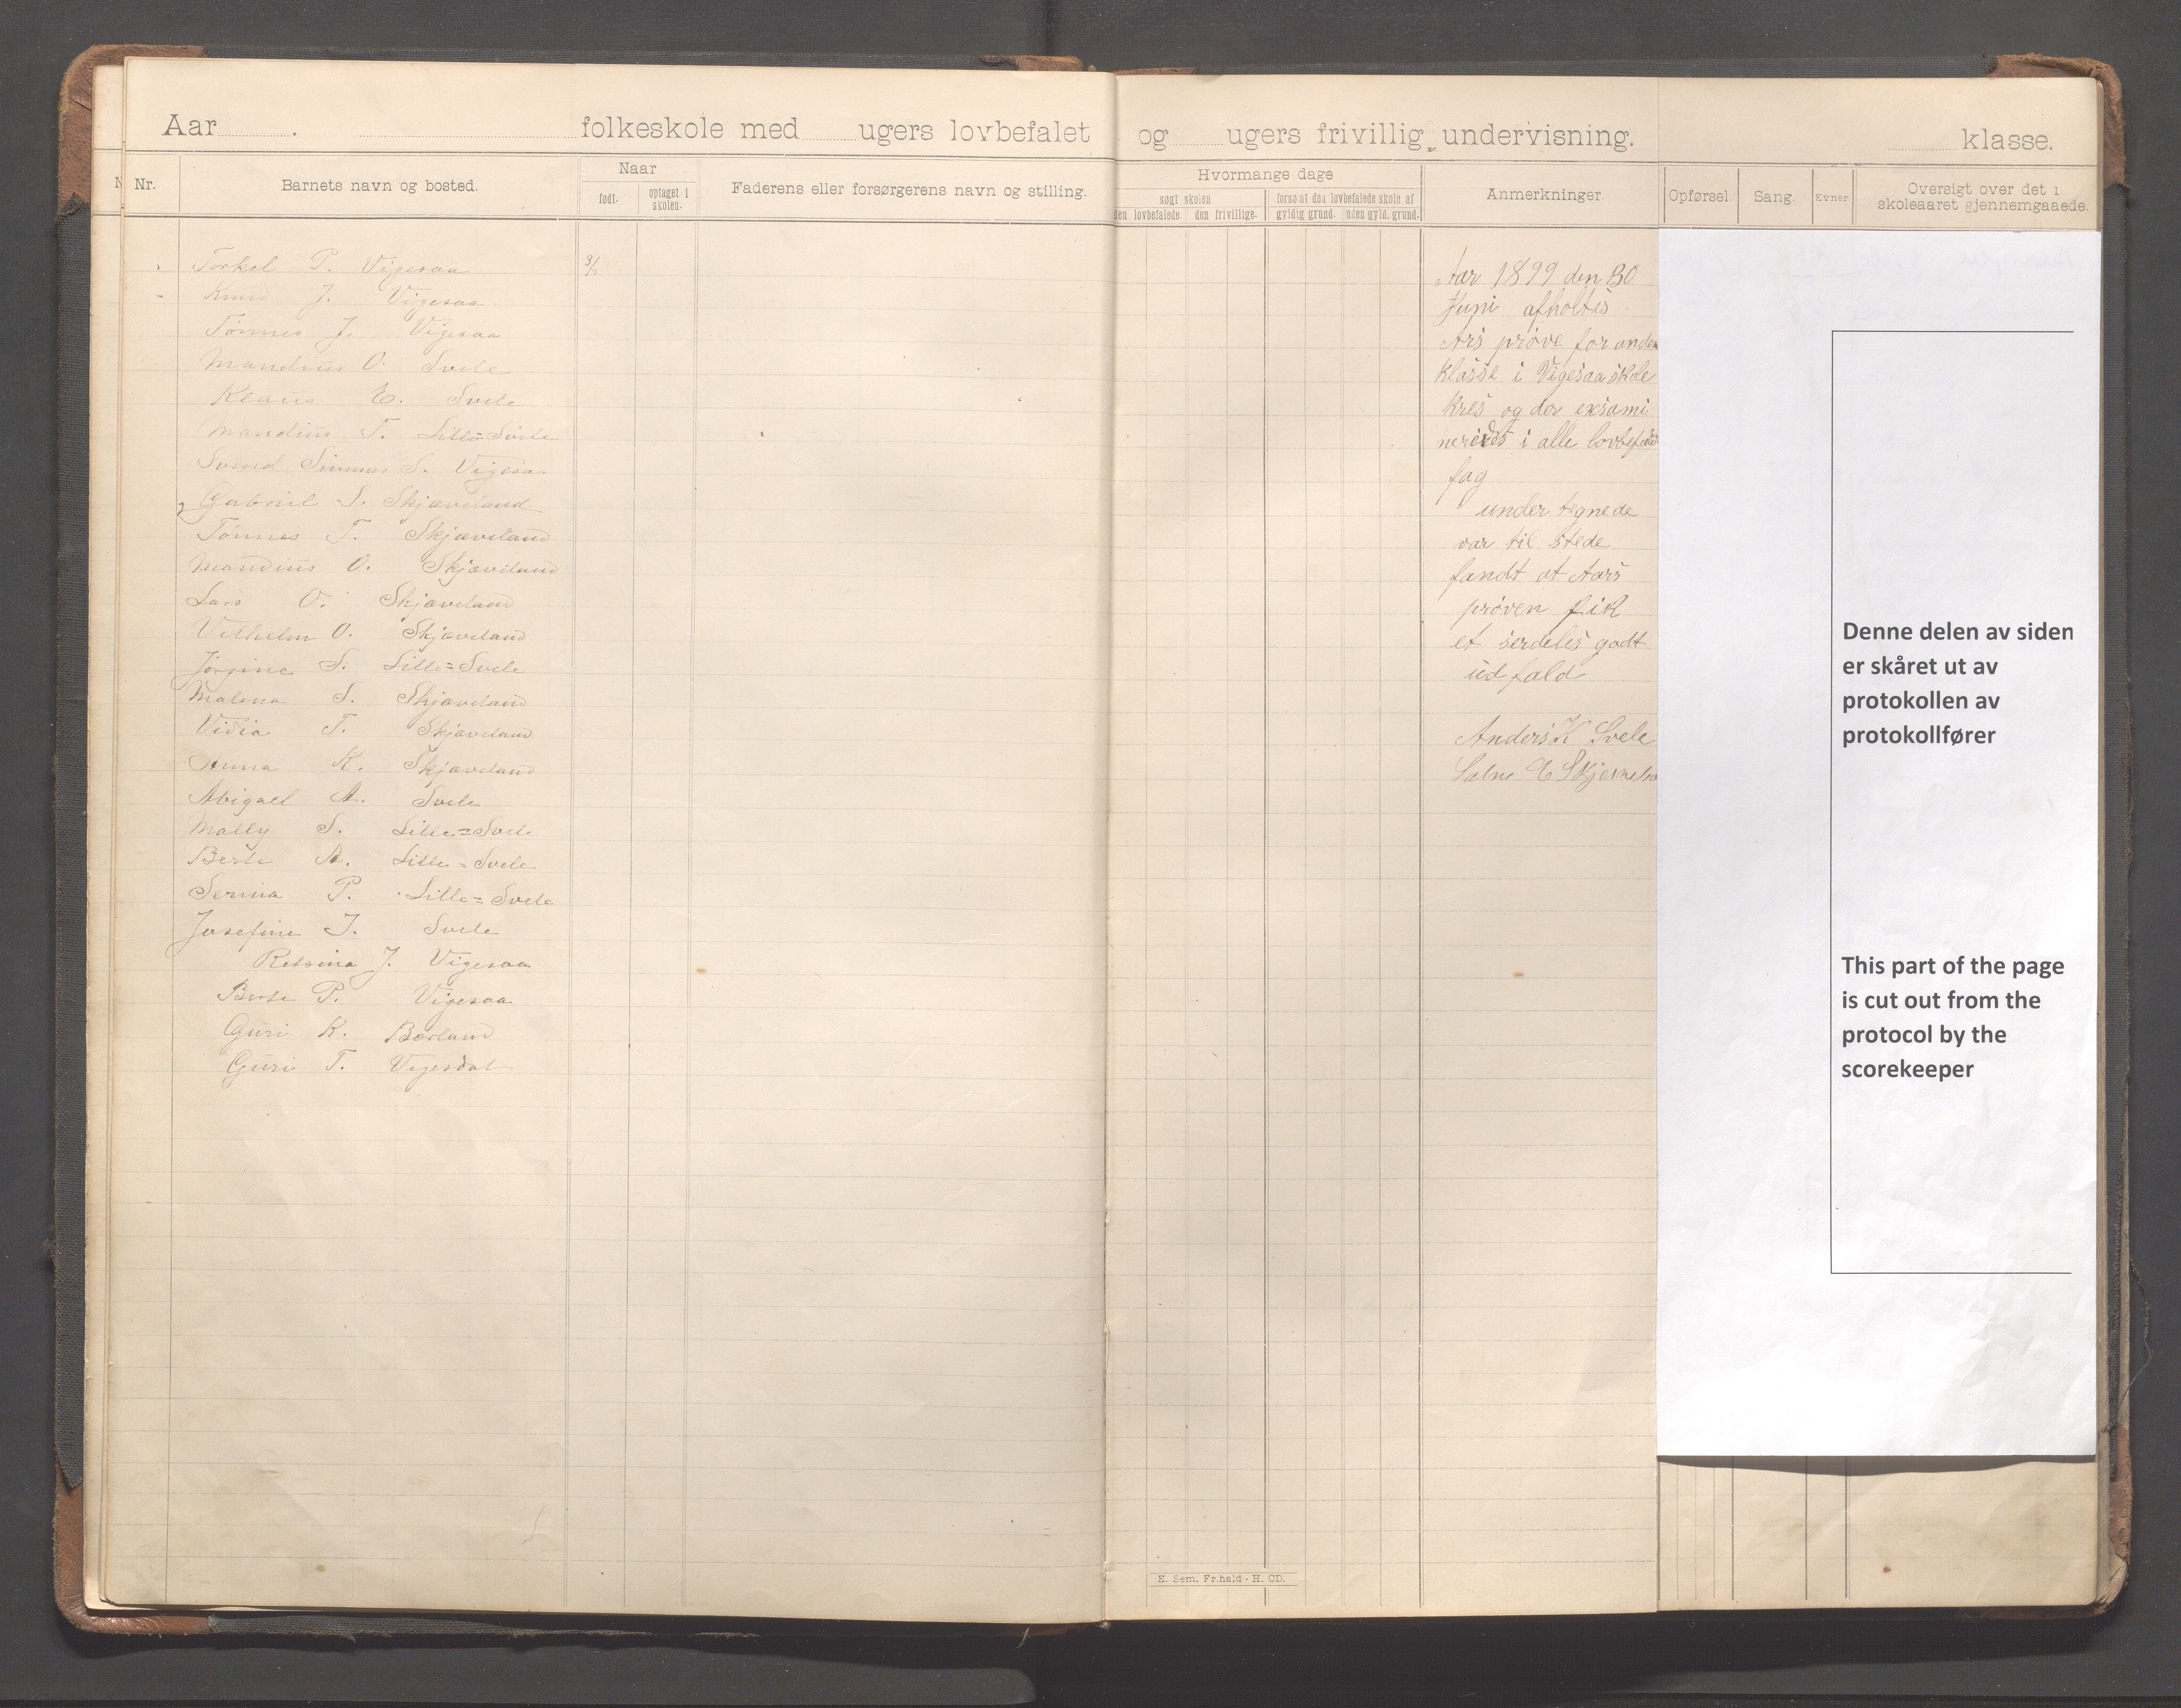 Aar . folkeskole med ugers lovbefalet og ugers frivillig undervisning. klasse.
Nr.
Barnets navn og bosted.
Naar
født.
optaget i skolen.
Faderens eller forsørgerens navn og stilling.
Hvormange dage
søgt skolen
den lovbefalede. den frivillige.
forsømt den lovbefalede skole af
gyldig grund. uden gyld. grund.
Anmerkninger.
Opførsel.
Sang.
Evner
Oversigt over det i
skoleaaret gjennemgaaede.
Torkel P. Vigesaa 3/
Knud J. Vigesaa
Tønnes J. Vigesaa
Mandius O. Svele
Klaus E. Svele
Mandius T. Lille=Svele
Svend S. Vigesaa
Gabriel S. Skjæveland
Tønnes T. Skjæveland
Mandius O. Skjæveland
Lars O. Skjæveland
Vilhelm O. Skjæveland
Jørgine S. Lille=Svele
Malena S. Skjæveland
Vidia T. Skjæveland
Anna K. Skjæveland
Abigael A. Svele
Mally S. Lille=Svele
Berte A. Lille=Svele
Serina P. Lille=Svele
Josefine J. Svele
Retsina J. Vigesaa
Berte P. Vigesaa
Guri K. Børland
Guri T. Vigesdal
Aar 1899 den 30
Juni afholtes
Ars prøve for anden
klasse i Vigesaa skole
kres og der exsami
neredes i alle
fag
under tegnede
var til stede
fandt at Aars
prøven fik
et serdeles godt
ud fald
Anders K Svele
E
Denne delen av siden
er skåret ut av
protokollen av
protokollfører
This part of the page
is cut out from the
protocol by the
scorekeeper
E. Sem. Fr.hald - H. CD.